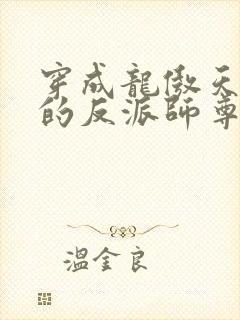 穿成龍傲天
的反派師尊
溫金良